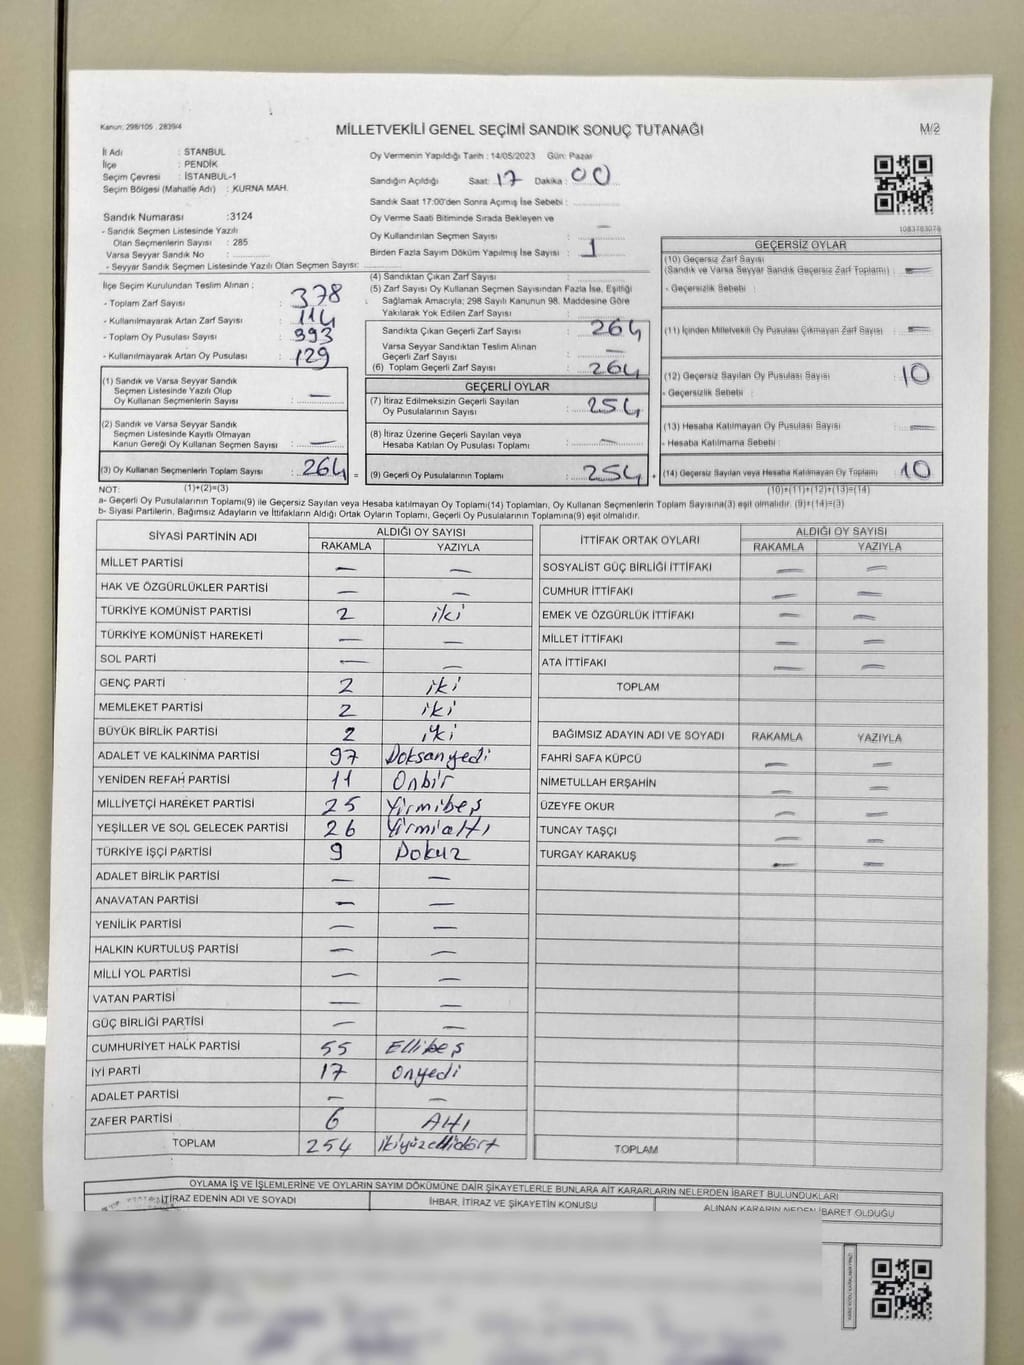 Kanun: 298/105 , 2839/4
MİLLETVEKİLİ GENEL SEÇİMİ SANDIK SONUÇ TUTANAĞI
M/2
İl Adı : STANBUL
İlçe : PENDİK
Seçim Çevresi : İSTANBUL-1
Seçim Bölgesi (Mahalle Adı) : KURNA MAH.
Oy Vermenin Yapıldığı Tarih : 14/05/2023 Gün: Pazar
Sandığın Açıldığı Saat: 17 Dakika: 00
Sandık Saat 17:00'den Sonra Açımış İse Sebebi :
Oy Verme Saati Bitiminde Sırada Bekleyen ve
Oy Kullandırılan Seçmen Sayısı : —
Birden Fazla Sayım Döküm Yapılmış İse Sayısı : 1
1083783078
Sandık Numarası :3124
- Sandık Seçmen Listesinde Yazılı
Olan Seçmenlerin Sayısı : 285
Varsa Seyyar Sandık No :
- Seyyar Sandık Seçmen Listesinde Yazılı Olan Seçmen Sayısı:
İlçe Seçim Kurulundan Teslim Alınan ;
- Toplam Zarf Sayısı : 378
- Kullanılmayarak Artan Zarf Sayısı : 114
- Toplam Oy Pusulası Sayısı : 393
- Kullanılmayarak Artan Oy Pusulası : 129
(1) Sandık ve Varsa Seyyar Sandık
Seçmen Listesinde Yazılı Olup
Oy Kullanan Seçmenlerin Sayısı : —
(2) Sandık ve Varsa Seyyar Sandık
Seçmen Listesinde Kayıtlı Olmayan
Kanun Gereği Oy Kullanan Seçmen Sayısı : —
(3) Oy Kullanan Seçmenlerin Toplam Sayısı : 264
(4) Sandıktan Çıkan Zarf Sayısı :
(5) Zarf Sayısı Oy Kullanan Seçmen Sayısından Fazla İse, Eşitliği
Sağlamak Amacıyla; 298 Sayılı Kanunun 98. Maddesine Göre
Yakılarak Yok Edilen Zarf Sayısı :
Sandıkta Çıkan Geçerli Zarf Sayısı : 264
Varsa Seyyar Sandıktan Teslim Alınan
Geçerli Zarf Sayısı : —
(6) Toplam Geçerli Zarf Sayısı : 264
GEÇERLİ OYLAR
(7) İtiraz Edilmeksizin Geçerli Sayılan
Oy Pusulalarının Sayısı : 254
(8) İtiraz Üzerine Geçerli Sayılan veya
Hesaba Katılan Oy Pusulası Toplamı : —
= (9) Geçerli Oy Pusulalarının Toplamı : 254 +
GEÇERSİZ OYLAR
(10) Geçersiz Zarf Sayısı
(Sandık ve Varsa Seyyar Sandık Geçersiz Zarf Toplamı) : —
- Geçersizlik Sebebi :
(11) İçinden Milletvekili Oy Pusulası Çıkmayan Zarf Sayısı : —
(12) Geçersiz Sayılan Oy Pusulası Sayısı : 10
- Geçersizlik Sebebi :
(13) Hesaba Katılmayan Oy Pusulası Sayısı : —
- Hesaba Katılmama Sebebi :
(14) Geçersiz Sayılan veya Hesaba Katılmayan Oy Toplamı : 10
NOT: (1)+(2)=(3) (10)+(11)+(12)+(13)=(14)
a- Geçerli Oy Pusulalarının Toplamı(9) ile Geçersiz Sayılan veya Hesaba katılmayan Oy Toplamı(14) Toplamları, Oy Kullanan Seçmenlerin Toplam Sayısına(3) eşit olmalıdır. (9)+(14)=(3)
b- Siyasi Partilerin, Bağımsız Adayların ve İttifakların Aldığı Ortak Oyların Toplamı, Geçerli Oy Pusulalarının Toplamına(9) eşit olmalıdır.
SİYASİ PARTİNİN ADI ALDIĞI OY SAYISI
RAKAMLA YAZIYLA
MİLLET PARTİSİ — —
HAK VE ÖZGÜRLÜKLER PARTİSİ — —
TÜRKİYE KOMÜNİST PARTİSİ 2 iki
TÜRKİYE KOMÜNİST HAREKETİ — —
SOL PARTİ — —
GENÇ PARTİ 2 iki
MEMLEKET PARTİSİ 2 iki
BÜYÜK BİRLİK PARTİSİ 2 iki
ADALET VE KALKINMA PARTİSİ 97 Doksanyedi
YENİDEN REFAH PARTİSİ 11 Onbir
MİLLİYETÇİ HAREKET PARTİSİ 25 Yirmibeş
YEŞİLLER VE SOL GELECEK PARTİSİ 26 Yirmialtı
TÜRKİYE İŞÇİ PARTİSİ 9 Dokuz
ADALET BİRLİK PARTİSİ — —
ANAVATAN PARTİSİ — —
YENİLİK PARTİSİ — —
HALKIN KURTULUŞ PARTİSİ — —
MİLLİ YOL PARTİSİ — —
VATAN PARTİSİ — —
GÜÇ BİRLİĞİ PARTİSİ — —
CUMHURİYET HALK PARTİSİ 55 Ellibeş
İYİ PARTİ 17 Onyedi
ADALET PARTİSİ — —
ZAFER PARTİSİ 6 Altı
TOPLAM 254 ikiyüzellidört
İTTİFAK ORTAK OYLARI ALDIĞI OY SAYISI
RAKAMLA YAZIYLA
SOSYALİST GÜÇ BİRLİĞİ İTTİFAKI — —
CUMHUR İTTİFAKI — —
EMEK VE ÖZGÜRLÜK İTTİFAKI — —
MİLLET İTTİFAKI — —
ATA İTTİFAKI — —
TOPLAM
BAĞIMSIZ ADAYIN ADI VE SOYADI RAKAMLA YAZIYLA
FAHRİ SAFA KÜPCÜ — —
NİMETULLAH ERŞAHİN — —
ÜZEYFE OKUR — —
TUNCAY TAŞÇI — —
TURGAY KARAKUŞ — —
TOPLAM
OYLAMA İŞ VE İŞLEMLERİNE VE OYLARIN SAYIM DÖKÜMÜNE DAİR ŞİKAYETLERLE BUNLARA AİT KARARLARIN NELERDEN İBARET BULUNDUKLARI
İTİRAZ EDENİN ADI VE SOYADI İHBAR, İTİRAZ VE ŞİKAYETİN KONUSU ALINAN KARARIN NEDEN İBARET OLDUĞU